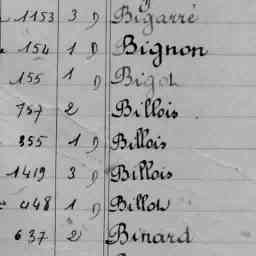 1153 3 D Bigarré
154 1 D Bignon
155 1 D Bigot
757 2 Billois
355 1 D Billois
1419 3 D Billois
448 1 D Billot
637 2 Binard